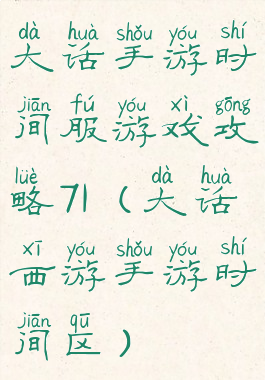 dà huà shǒu yóu shí
大话手游时
jiān fú yóu xì gōng
间服游戏攻
lüè dà huà
略71（大话
xī yóu shǒu yóu shí
西游手游时
jiān qū
间区）